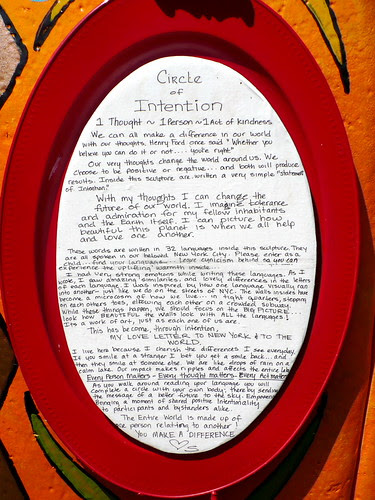 Circle
of
Intention
1 Thought ~ 1 Person ~ 1 Act of kindness
We can all make a difference in our world
with our thoughts. Henry Ford once said "Whether you
believe you can do it or not.... you're right"
Our very thoughts change the world around us. We
choose to be positive or negative... and both will produce
results. Inside this sculpture are written a very simple "statement
of Intention."
With my thoughts I can change the
future of our world. I imagine tolerance
and admiration for my fellow inhabitants
and the Earth itself. I can picture how
beautiful this planet is when we all help
and love one another.
These words are written in 32 languages inside this sculpture. They
are all spoken in our beloved New York City. Please enter as a
child... find your language... Leave cynicism behind so you can
experience the uplifting warmth inside.
I had very strong emotions while writing these languages. As I
wrote, I saw amazing similarities and lovely differences in the letters
of each language. I was inspired by how one language visually ran
into another just like we do on the streets of NYC. The walls inside have
become a microcosm of how we live... in tight quarters, stepping
on each others toes, elbowing each other on a crowded subway.
While these things happen, we should focus on the BIG PICTURE.
Look how BEAUTIFUL the walls look with ALL the languages!
Its a work of art, just as each one of us are.
This has become, through intention,
MY LOVE LETTER TO NEW YORK & TO THE
WORLD.
I live here because I cherish the differences I see everyday.
If you smile at a stranger I bet you get a smile back... and
then they smile at someone else. We are like drops of rain on a
calm lake. Our impact makes ripples and affects the entire lake.
Every Person Matters - Every thought matters - Every Act matters
As you walk around reading your language you will
complete a circle with your own body, there by sending
the message of a better future to the sky. Empowering
Bringing a moment of shared positive intentionality
to participants and bystanders alike.
The Entire World is made up of
one person relating to another!
YOU MAKE A DIFFERENCE